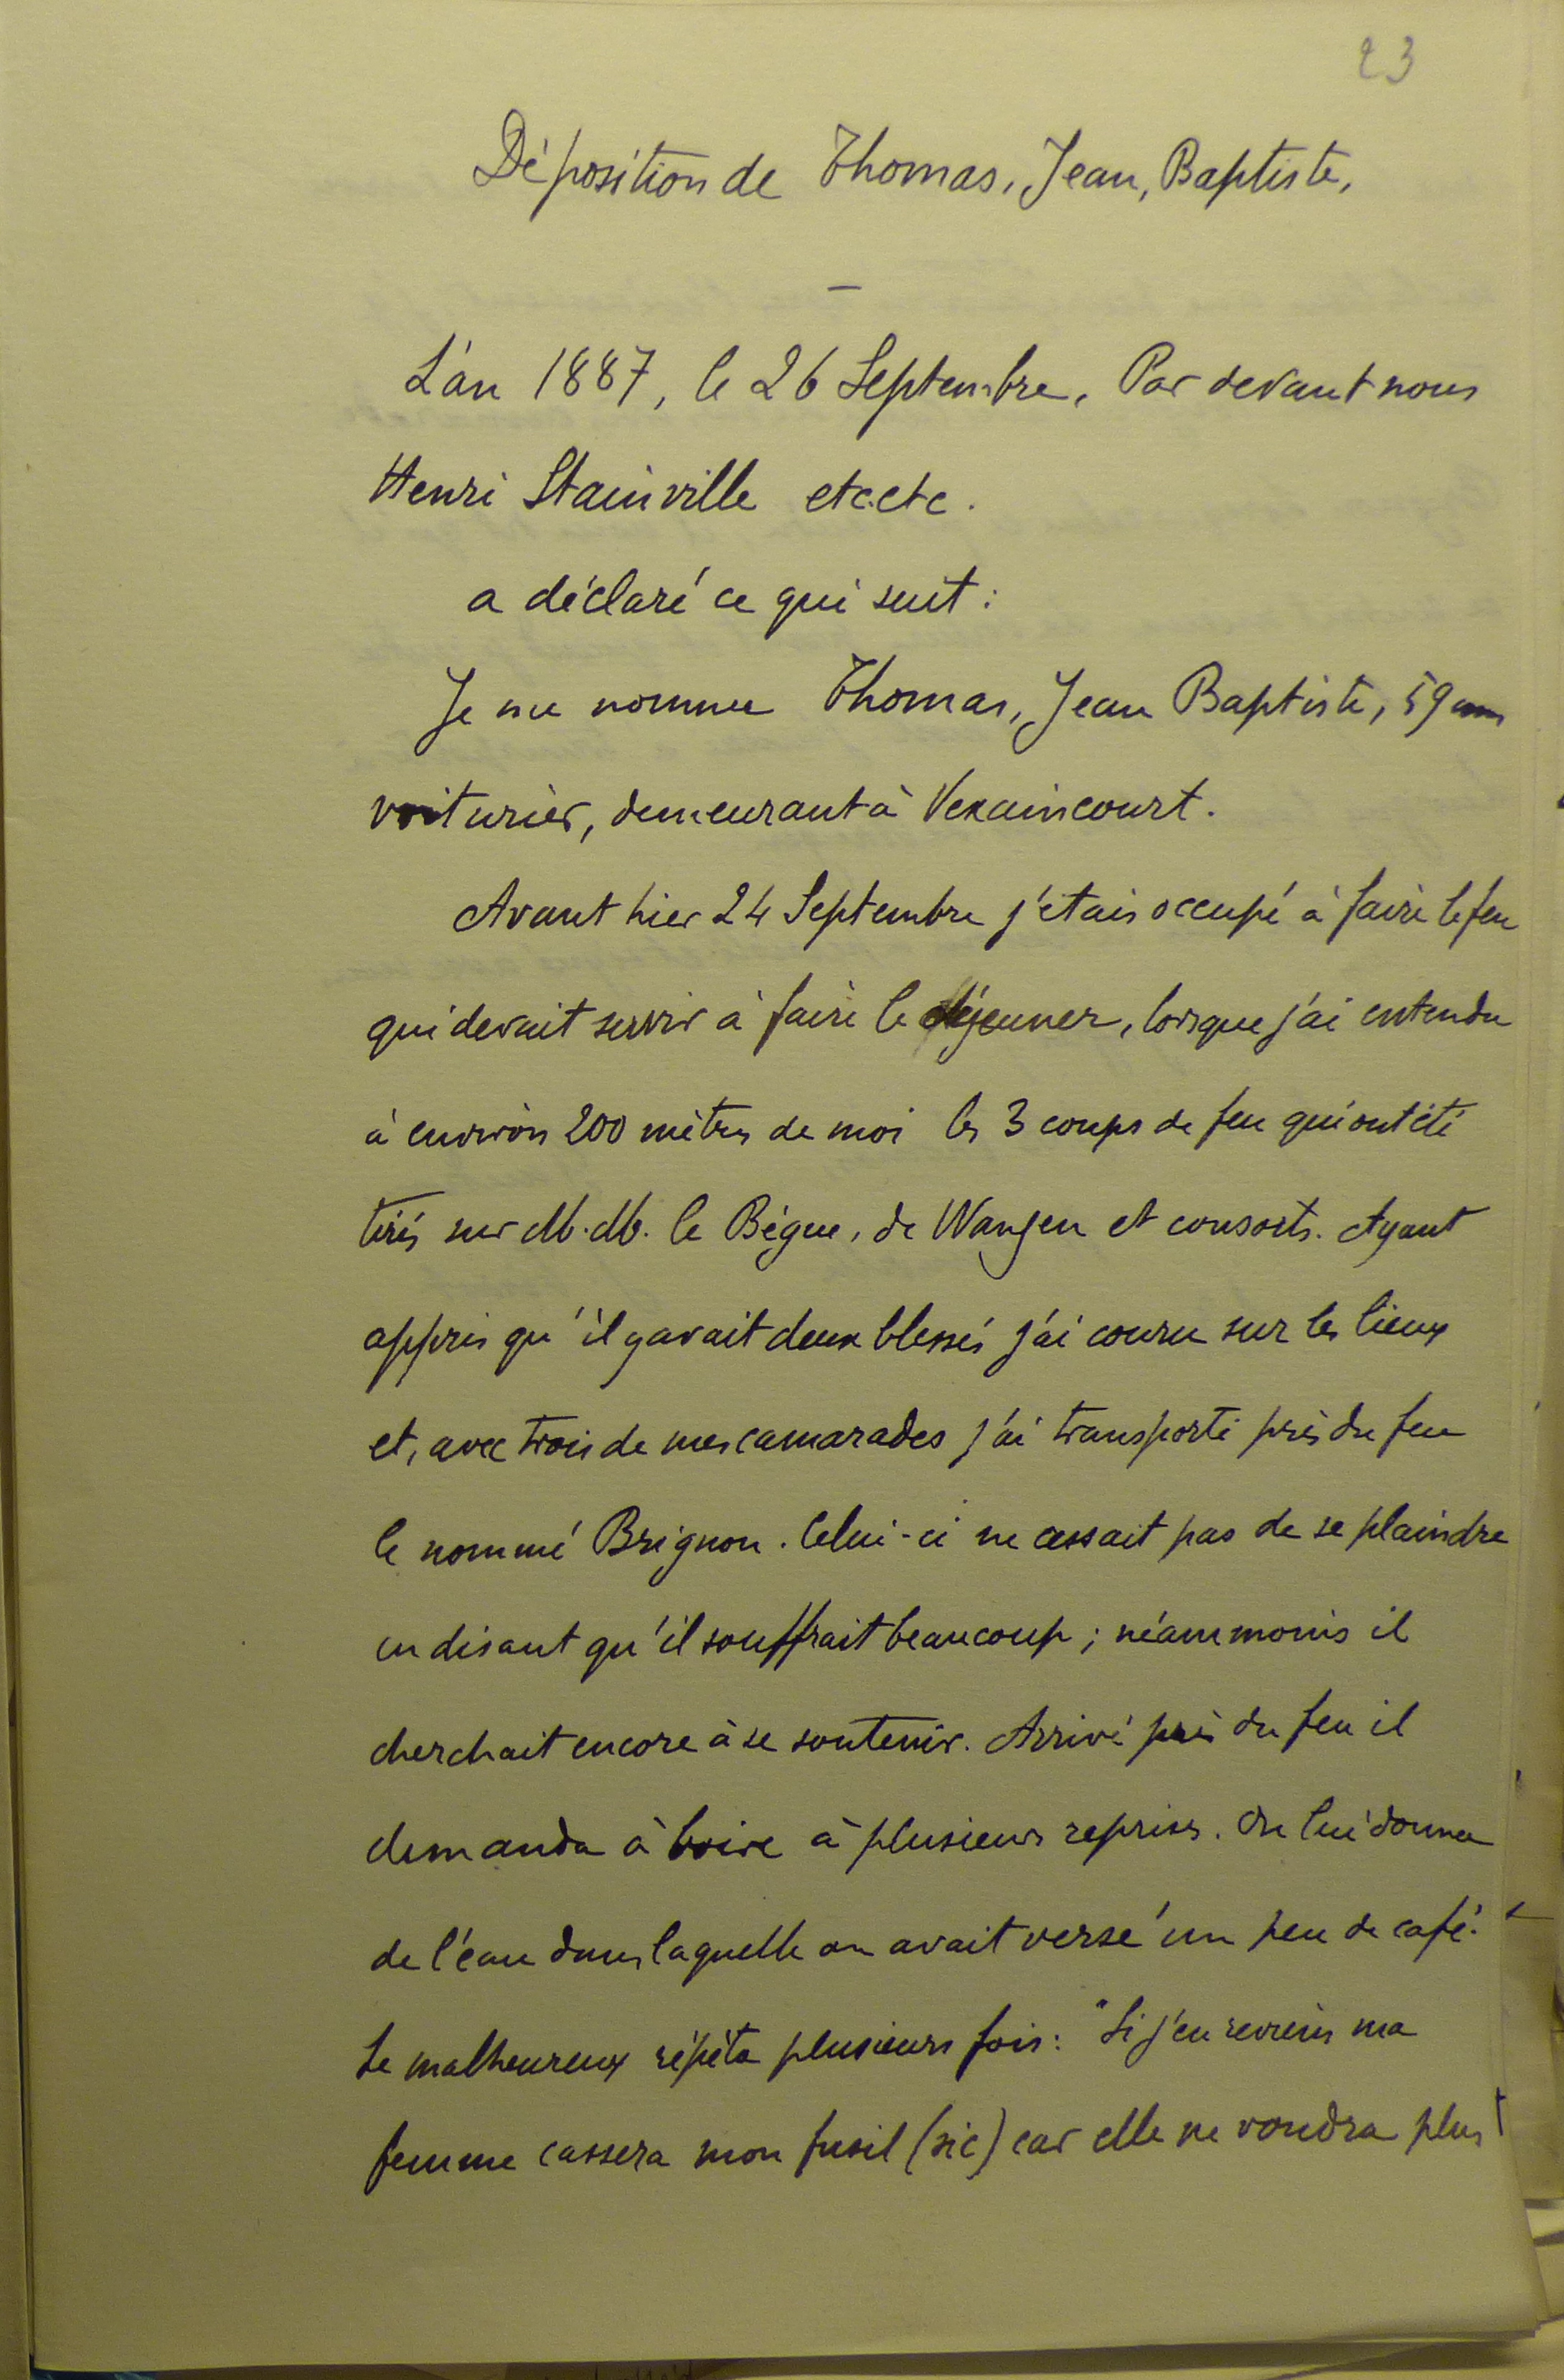 23
Déposition de Thomas, Jean, Baptiste,
—
L'an 1887, le 26 Septembre, Par devant nous
Henri Stainville etc etc.
a déclaré ce qui suit :
Je me nomme Thomas, Jean Baptiste, 59 ans
voiturier, demeurant à Vexaincourt.
Avant hier 24 Septembre j'étais occupé à faire le feu
qui devait servir à faire le déjeuner, lorsque j'ai entendu
à environ 200 mètres de moi les 3 coups de feu qui ont été
tirés sur M.M. le Bègue, de Wangen et consorts. Ayant
appris qu'il y avait deux blessés j'ai couru sur les lieux
et, avec trois de mes camarades j'ai transporté près du feu
le nommé Brignon. Celui-ci ne cessait pas de se plaindre
en disant qu'il souffrait beaucoup ; néammoins il
cherchait encore à se soutenir. Arrivé près du feu il
demanda à boire à plusieurs reprises. On lui donna
de l'eau dans laquelle on avait versé un peu de café.
Le malheureux répéta plusieurs fois : "Si j'en reviens ma
femme cassera mon fusil (sic) car elle ne voudra plus